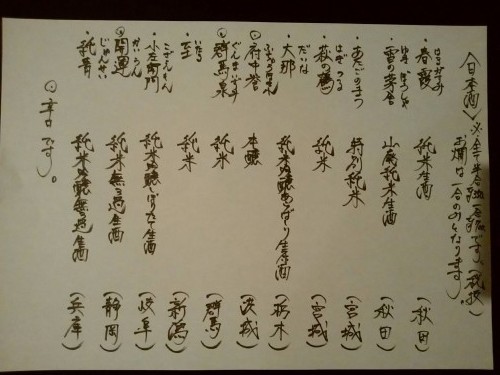 〈日本酒〉※全て半合 一合 です。(税抜)
お燗は一合のみとなります。
はるがすみ
・春霞 純米生酒 (秋田)
ゆきのぼうしゃ
・雪の茅舎 山廃純米生酒 (秋田)
・あたごのまつ 特別純米 (宮城)
はぎのつる
・萩の鶴 純米 (宮城)
だいな
・大那 純米吟醸 生原酒 (栃木)
ふちゅうほまれ
◎府中誉 本醸 (茨城)
ぐんまいずみ
◎群馬泉 純米 (群馬)
いたる
・至 純米 (新潟)
こざえもん
・小左衛門 純米吟醸しぼりたて生酒 (岐阜)
かいうん
◎開運 純米無濾過生酒 (静岡)
じゅんせい
・純青 純米吟醸無濾過生酒 (兵庫)
◎辛口です。